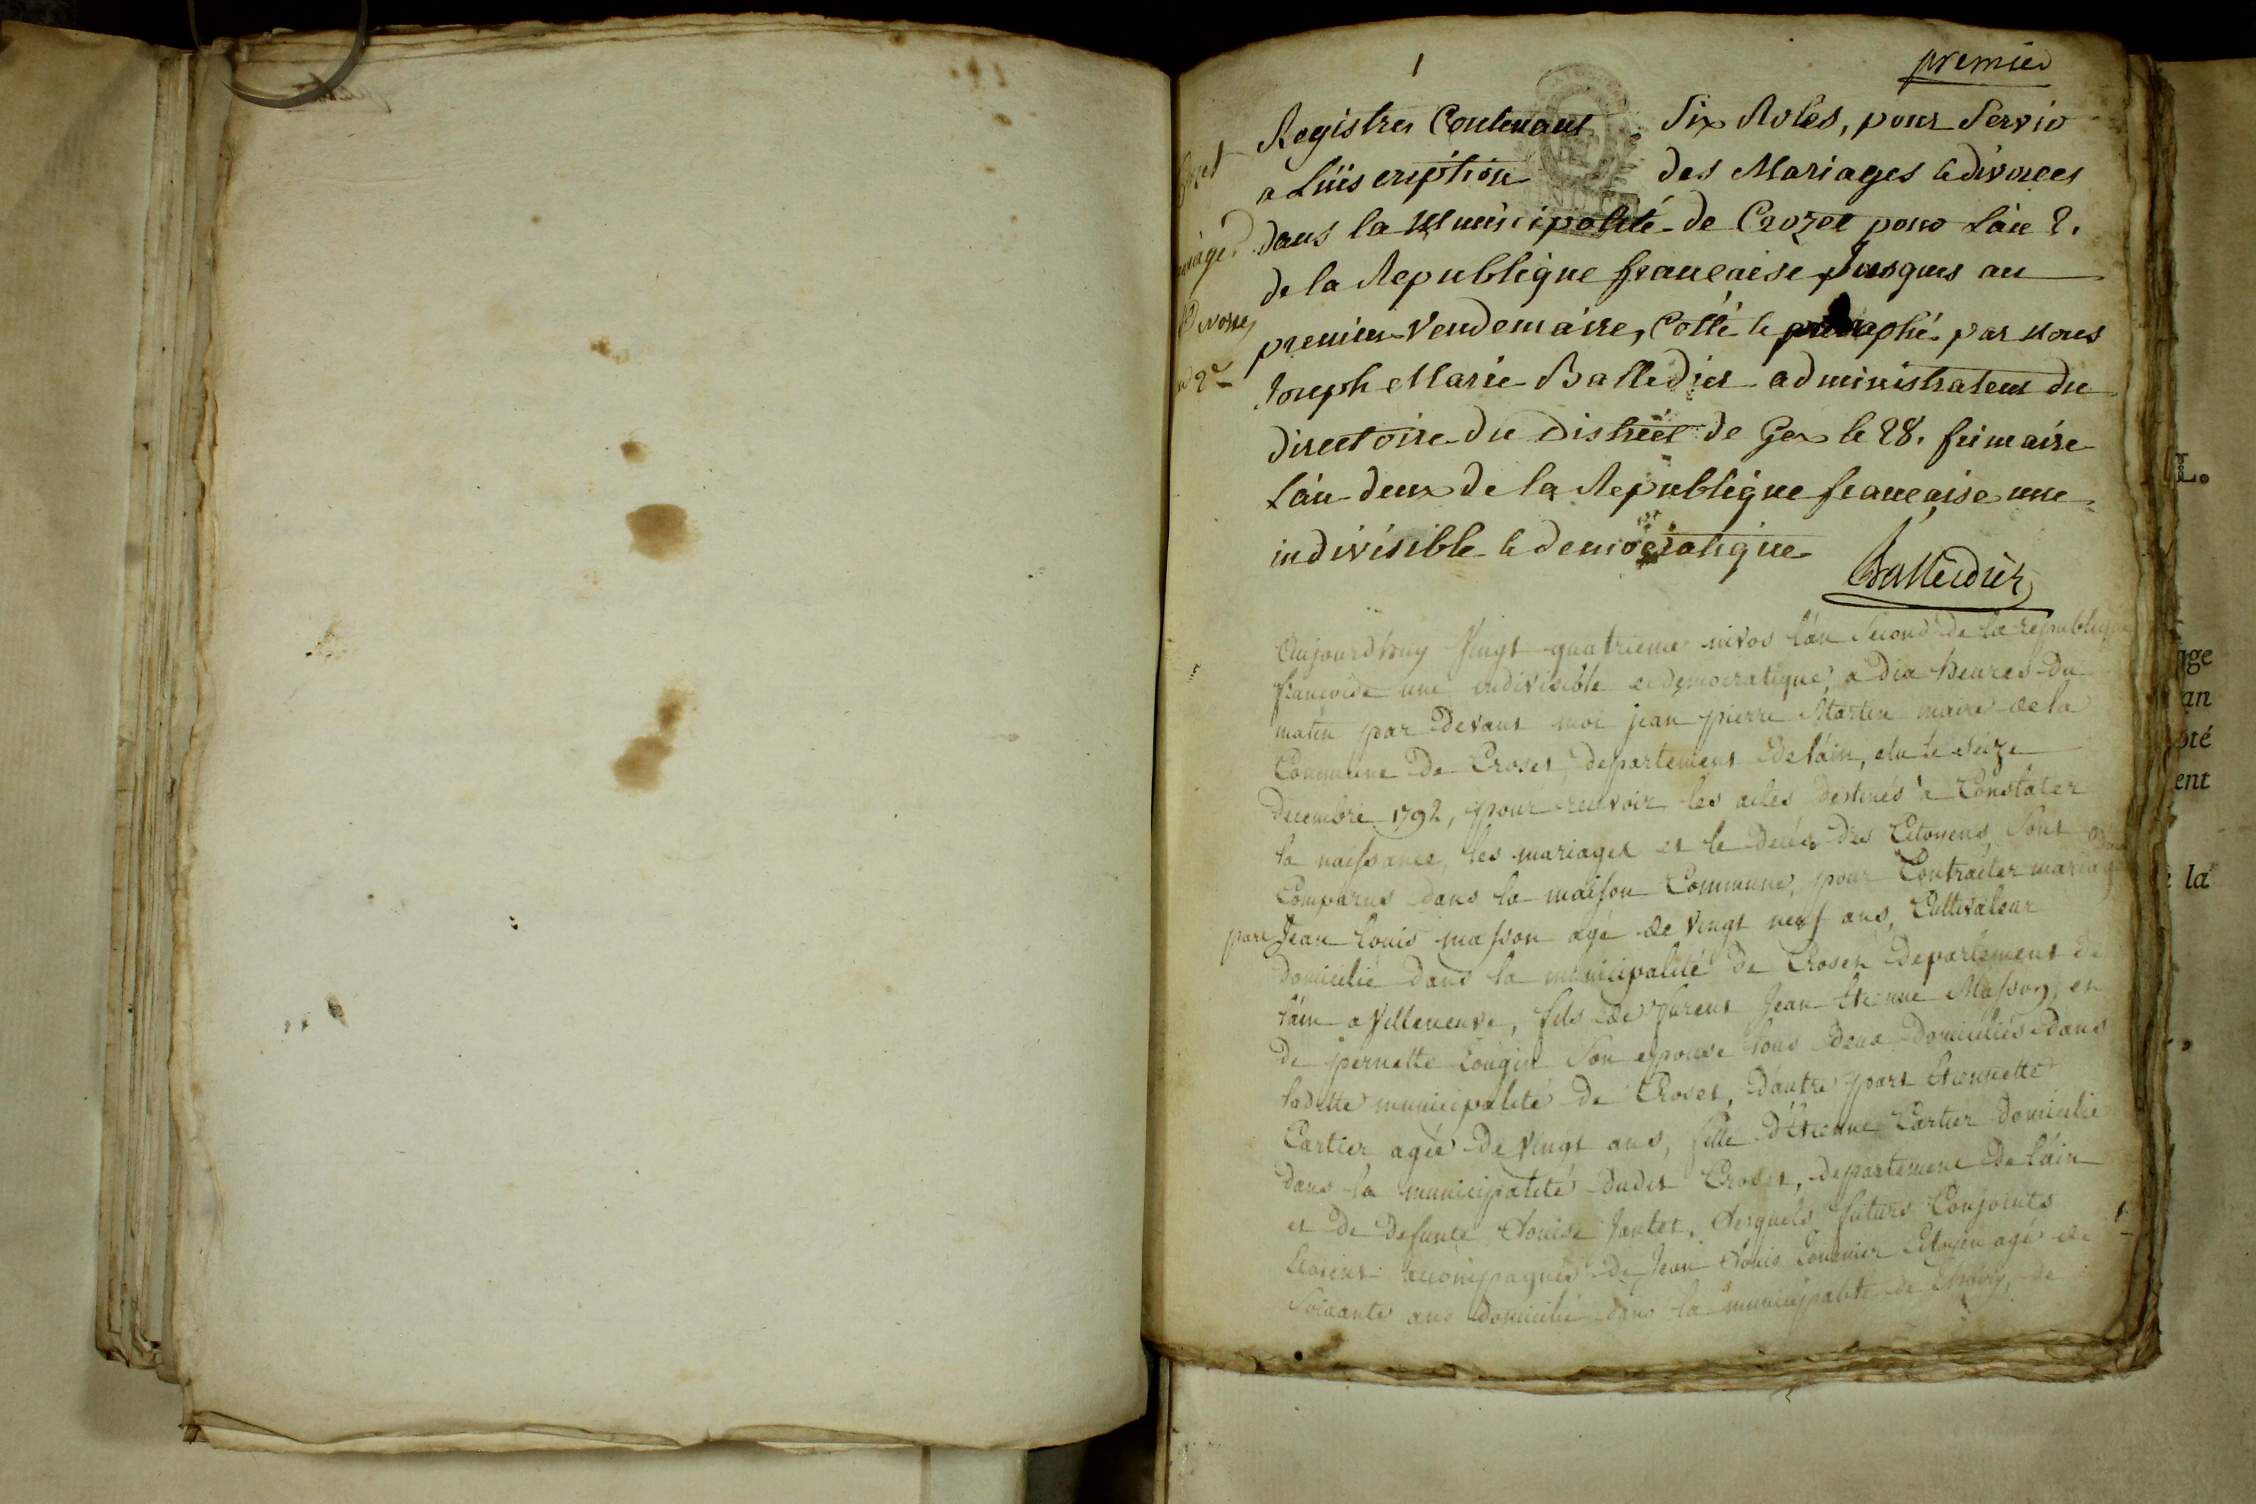 1
premier
Registres Contenant Six Roles, pour Servir
a Linscription des Mariages & divorces
dans la Municipalité de Crozet pour L'an 2.
de la Republique française Jusques au
premier Vendemaire, Cotté & paraphé par nous
Joseph Marie Balleidier administrateur du
directoire du District de Gex le 28. frimaire
L'an deux de la Republique française une
indivisible & democratique
Balleidier
Divorses
Aujourdhuy Vingt quatrieme nivos l'an Second de la republique
françoise une indivisible et democratique, a dix heures du
matin par devant moi jean pierre Martin maire de la
Commune de Croset, departement de l'ain, elu le seize
decembre 1792, pour recevoir les actes destinés a Constater
la naissance, les mariages et le decés des Citoyens, Sont
Comparus dans la maison Commune, pour Contracter mariage
part Jean Louis masson agé de vingt neuf ans, Cultivateur
domicilié dans la municipalité de Croset departement de
l'ain a Villeneuve, fils de Jean Etienne Masson, et
de pernette Longin Son epouse tous deux domiciliés dans
laditte municipalité de Croset, d'autre part Etiennette
Cartier agée de vingt ans, fille d'Etienne Cartier domicilié
dans la municipalité dudit Croset, departement de l'ain
et de defunte Louise Jantet, lesquels futurs Conjoints
Etoient accompagnés de Jean Louis Citoyen agé de
Soixante ans domicilié dans la municipalité de de